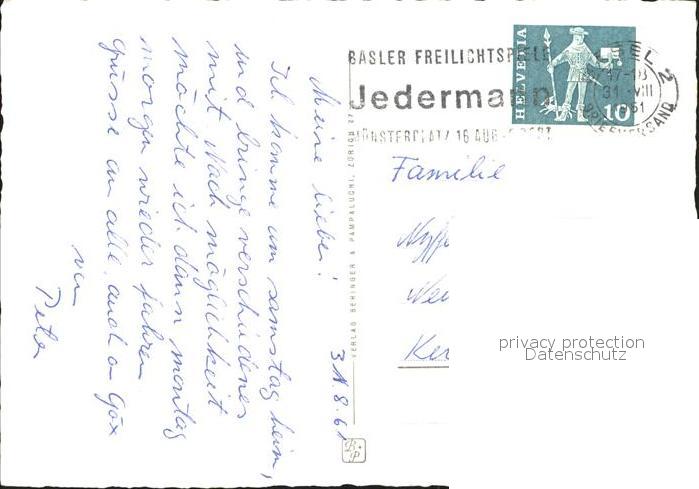 Meine lieben!
31.8.61
Ich komme am samstag heim,
und bringe verschiedenes
mit. Nach möglichkeit
möchte ich dann montag
morgen wieder fahren
Grüsse an alle, auch an Göx
von
Peter
BASLER FREILICHTSPIELE
Jedermann
MÜNSTERPLATZ 16 AUG - SEPT
HELVETIA
10
BASEL 2
17-18
31 VIII
1961
BRIEFVERSAND
Familie
VERLAG BEHINGER & PAMPALUCHI, ZÜRICH 27
B+P
privacy protection
Datenschutz